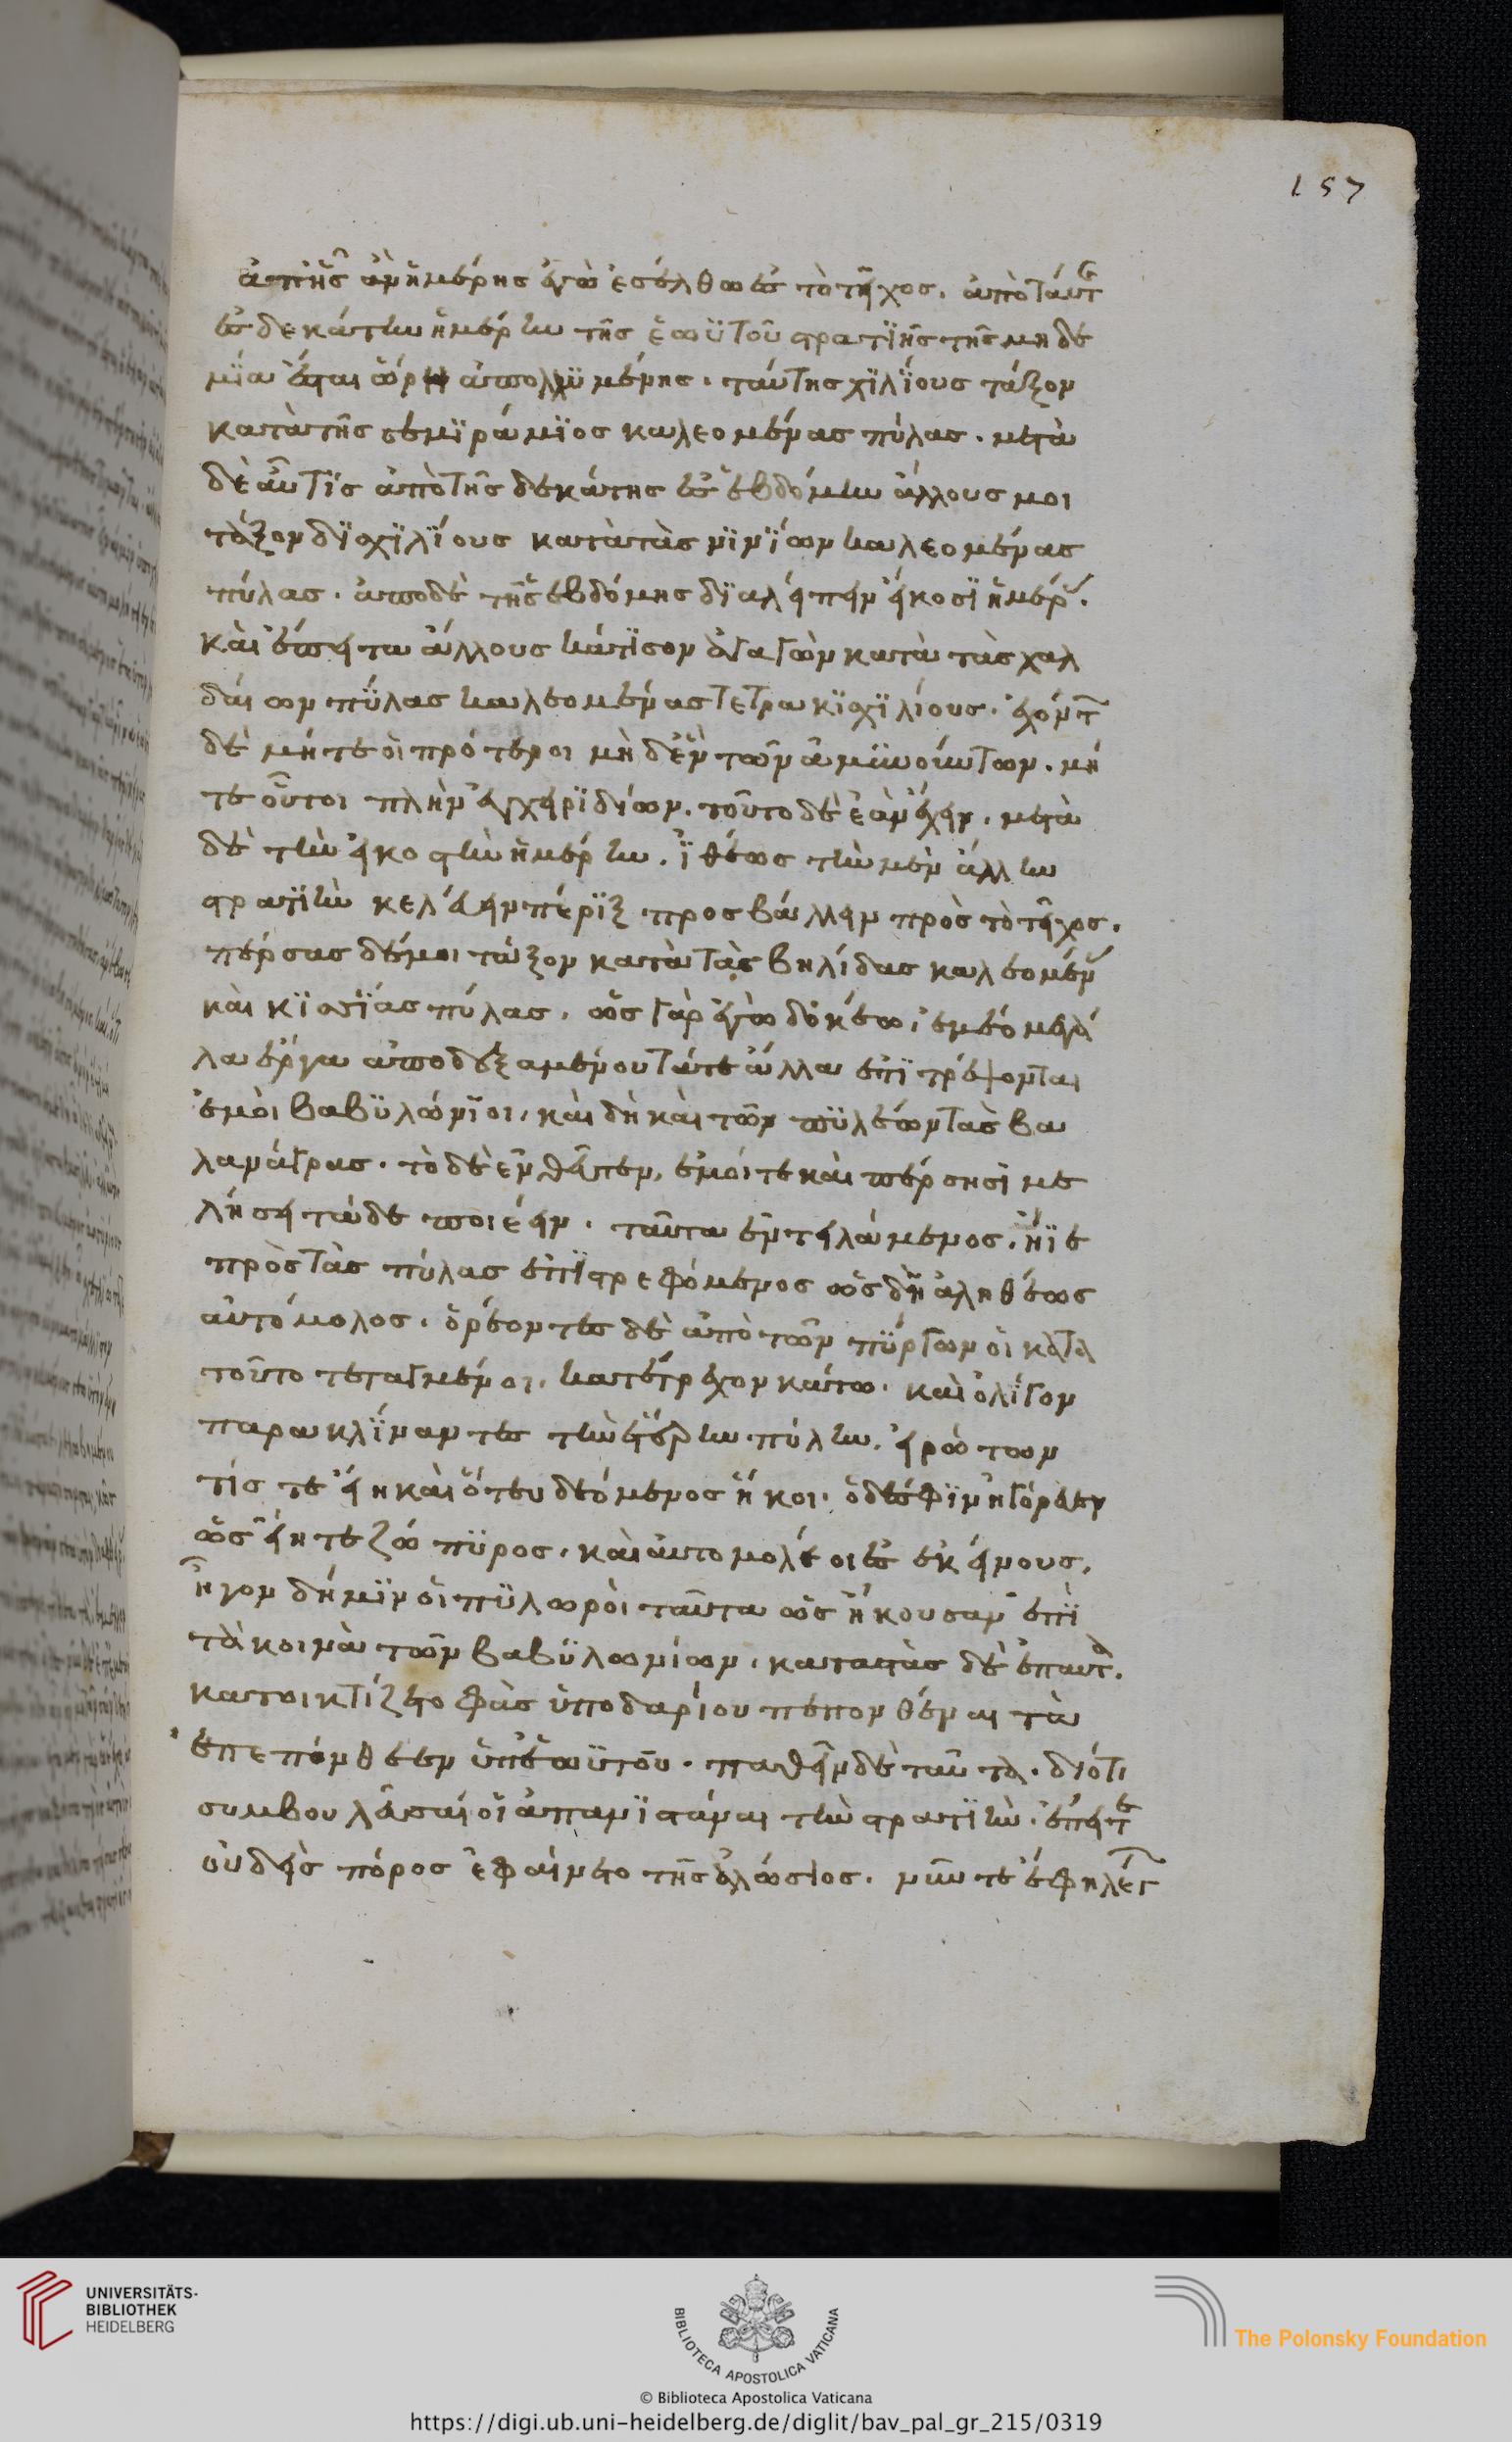 157
ἀπ' ἧς ἂν ἡμέρης ἐγὼ ἐσέλθω ἐς τὸ τεῖχος. ἀπὸ ταύτης
ἐς δεκάτην ἡμέρην τῆς ἑωϋτοῦ στρατϊῆς τῆς μηδε
μΐα ἔσται ὥρη ἀπολλϋμένης. ταύτης χϊλΐους τάξον
κατὰ τῆς σεμϊράμϊος καλεομένας πύλας. μετὰ
δὲ αὖτις ἀπὸ τῆς δεκάτης ἐς ἑβδόμην ἄλλους μοι
τάξον δϊσχϊλΐους κατὰ τὰς νϊνΐων καλεομένας
πύλας. ἀπο δὲ τῆς ἑβδόμης δϊαλείπειν εἴκοσϊ ἡμέρας.
καὶ ἔπειτα ἄλλους κάτϊσον ἀγαγὼν κατὰ τὰς χαλ
δαίων πΰλας καλεομένας τετρακϊσχϊλίους. ἐχόντων
δὲ μήτε οἱ πρότεροι μὴ δὲν τῶν ἀμϋνούντων. μή
τε οὗτοι πλὴν ἐγχειρϊδίων. τοῦτο δὲ ἐὰν ἔχειν. μετὰ
δὲ τὴν εἰκοστὴν ἡμέρην. ϊθέως τὴν μὲν ἄλλην
στρατϊὴν κελεύειν πέρϊξ προσβάλλειν πρὸς τὸ τεῖχος.
πέρσας δέ μοι τάξον κατὰ τὰς βηλίδας καλεομένας
καὶ κϊσσΐας πύλας. ὡς γὰρ ἐγὼ δοκέω, ἐμέο μεγά
λα ἔργα ἀποδεξαμένου τά τε ἄλλα ἐπϊτρέψονται
ἐμοὶ βαβϋλώνϊοι, καὶ δὴ καὶ τῶν πϋλέων τὰς βα
λανάγρας. τὸ δὲ ἐνθεῦτεν, ἐμοί τε καὶ πέρσησϊ με
λήσει τὰ δε ποιέειν. ταῦτα ἐντειλάμενος. ἤϊε
πρὸς τὰς πύλας ἐπϊστρεφόμενος ὡς δὴ ἀληθέως
αὐτόμολος. ὁρέοντες δὲ ἀπὸ τῶν πϋργων οἱ κατὰ
τοῦτο τεταγμένοι, κατέτρεχον κάτω. καὶ ὀλίγον
παρακλΐναντες τὴν ἑτέρην πύλην, εἰρώτων
τίς τε εἴη καὶ ὅτευ δεόμενος ἥκοι. ὁ δέ σφϊ ἠγόρευεν
ὡς εἴη τε ζώπϋρος. καὶ αὐτομολέοι ἐς ἐκείνους.
ἦγον δή μϊν οἱ πϋλωροὶ ταῦτα ὡς ἤκουσαν ἐπϊ
τὰ κοινὰ τῶν βαβϋλωνίων. καταστὰς δὲ ἐπ' αὐτὰ.
κατοικτίζετο φὰς ὑπο δαρίου πεπονθέναι τὰ
ἐπεπόνθεεν ὑπ' ἑωϋτοῦ. παθεῖν δὲ ταῦτα. διότι
συμβουλεῦσαί οἱ ἀπανϊστάναι τὴν στρατϊὴν. ἐπείτε
οὐδεὶς πόρος ἐφαίνετο τῆς ἁλώσιος. νῦν τε ἔφη λέγων
UNIVERSITÄTS-
BIBLIOTHEK
HEIDELBERG
BIBLIOTECA APOSTOLICA VATICANA
The Polonsky Foundation
© Biblioteca Apostolica Vaticana
https://digi.ub.uni-heidelberg.de/diglit/bav_pal_gr_215/0319